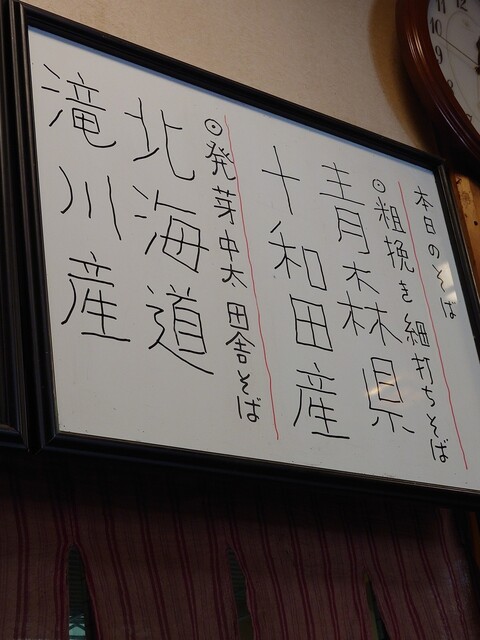 本日のそば
◎粗挽き細打ちそば
青森県
十和田産
◎発芽中太田舎そば
北海道
滝川産